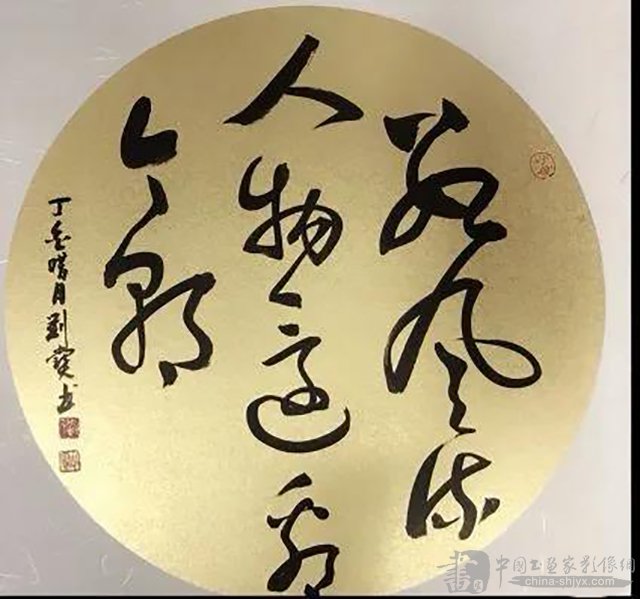 数风流
人物还看
今朝
丁酉腊月刘宝书
中国书画家影像网
china-shjyx.com